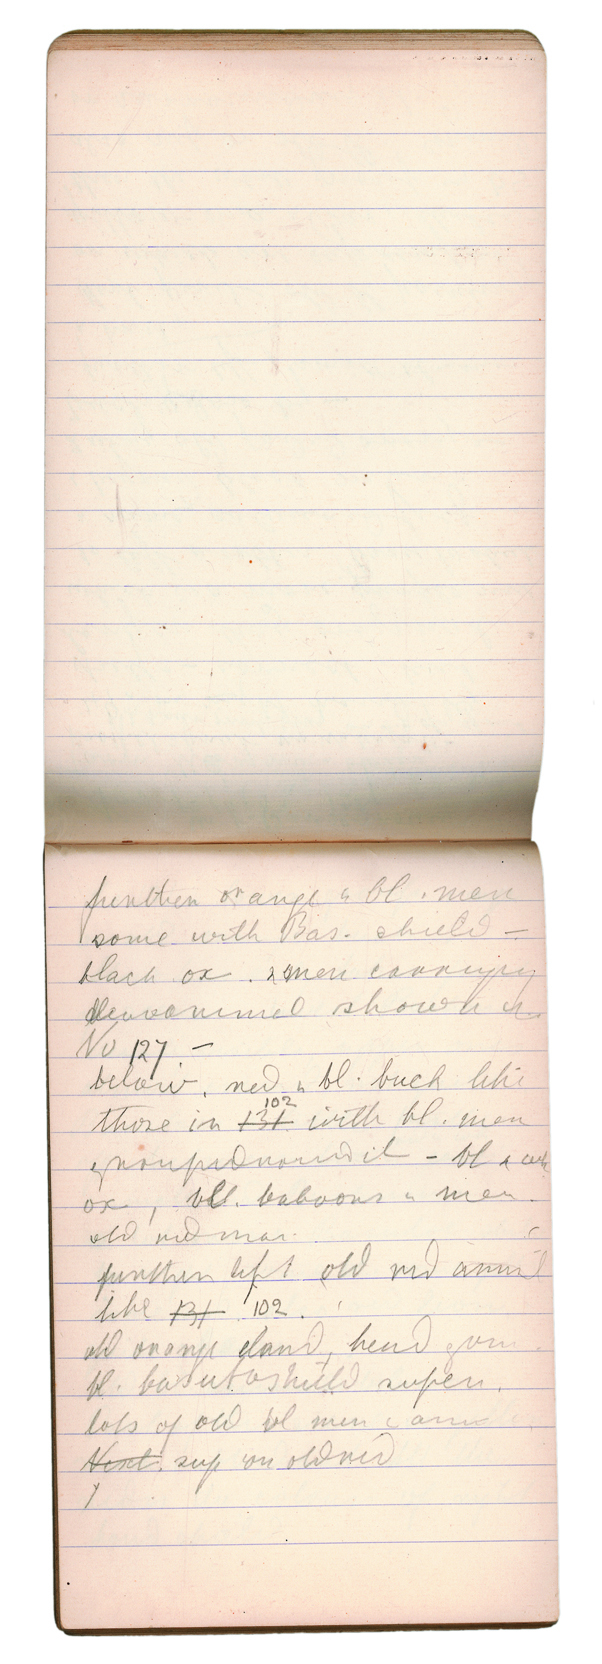 further orange & bl. men
some with Bas. shield –
black ox. & men carrying
animal shown in
No 127 –
below, red & bl. buck like
102
those in 131 with bl. men
grouped round it – bl &
ox, bl. baboons & men.
old red man.
further left old red animal
like 131 102.
old orange eland, head gone.
bl. basuto shield super.
lots of old bl men &
Next. sup on old red